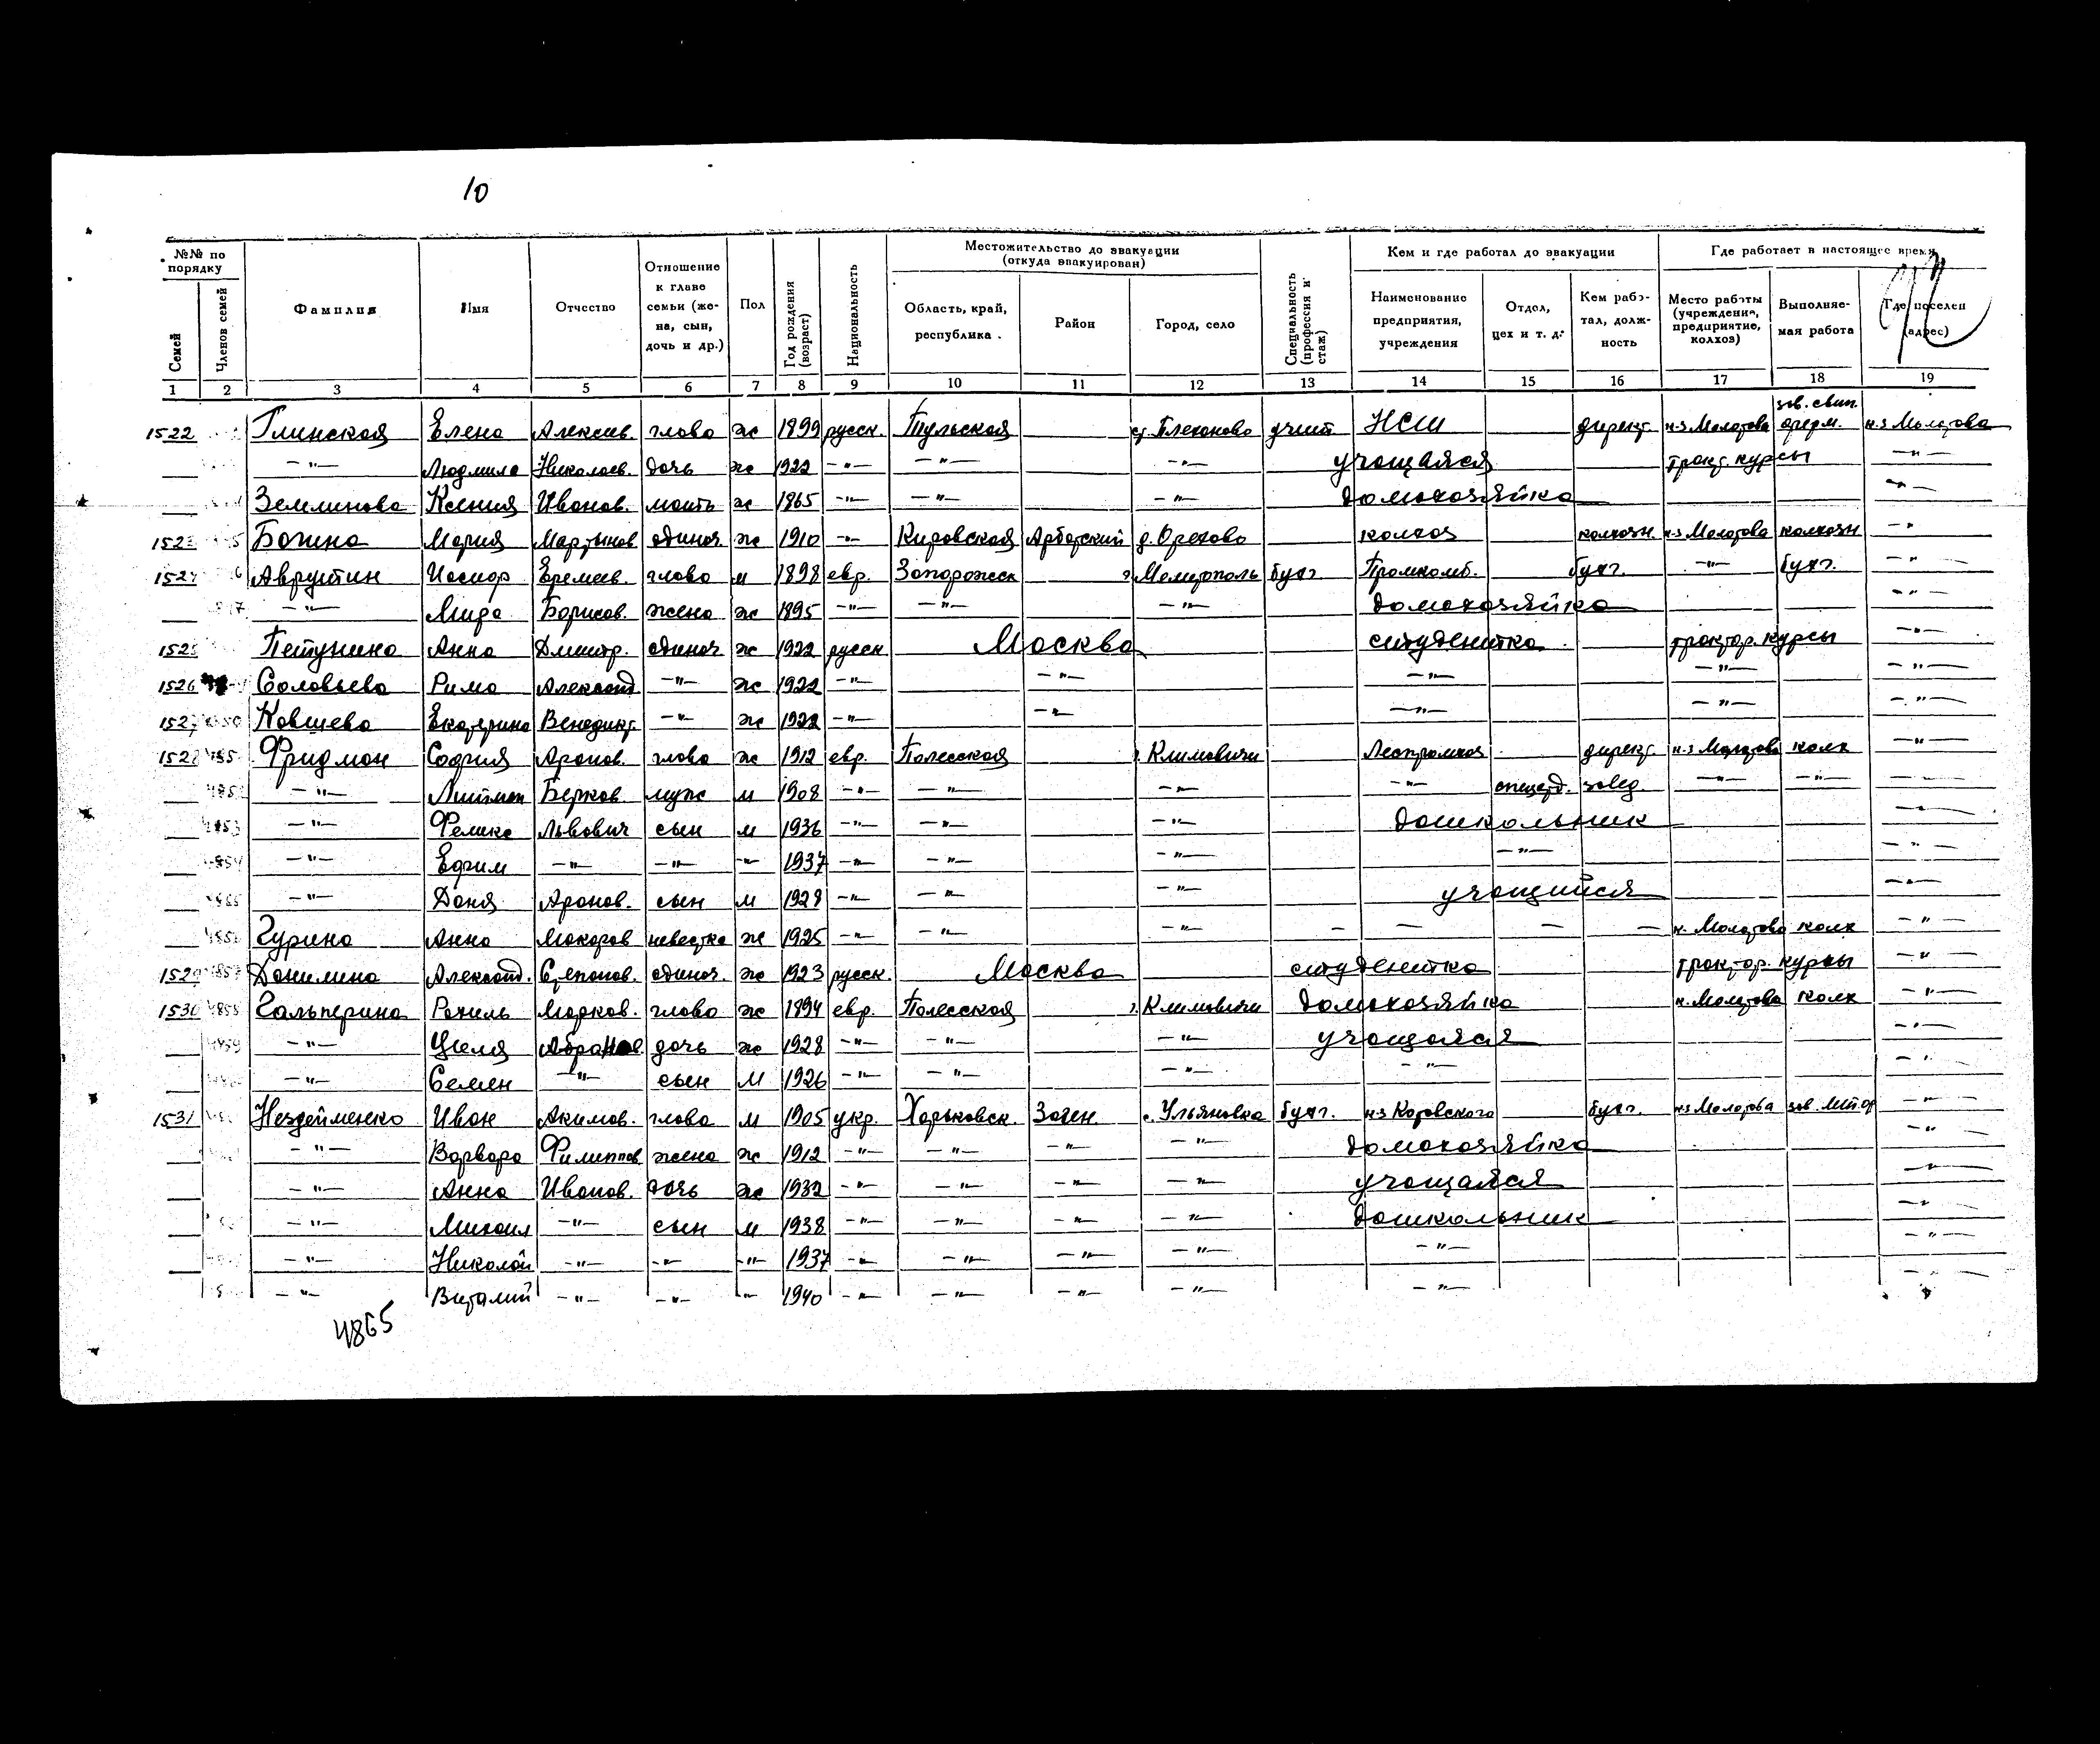 10
№№ по порядку Фамилия Имя Отчество Отношение к главе семьи (жена, сын, дочь и др.) Пол Год рождения (возраст) Национальность Местожительство до эвакуации (откуда эвакуирован) Специальность (профессия и стаж) Кем и где работал до эвакуации Где работает в настоящее время Где поселен (адрес)
Семей Членов семей Область, край, республика Район Город, село Наименование предприятия, учреждения Отдел, цех и т. д. Кем работал, должность Место работы (учреждение, предприятие, колхоз) Выполняемая работа
1 2 3 4 5 6 7 8 9 10 11 12 13 14 15 16 17 18 19
1522 Глинская Елена Алексеев. глава ж 1899 русск. Тульская ст. Плеханово учит НСШ директ. к-з Молотова зав. свин. ферм. к-з Молотова
-"- Людмила Николаев. дочь ж 1922 -"- -"- -"- учащаяся тракт. курсы -"-
Землинова Ксения Иванов. мать ж 1865 -"- -"- -"- домохозяйка -"-
1523 Богина Мария Мартынов одиноч. ж 1910 -"- Кировская Арботский д. Орехово колхоз колхозн. к-з Молотова колхозн -"-
1524 Аврутин Иосиф Еремеев. глава м 1898 евр. Запорожск г. Мелитополь бухг. Промкомб. бухг. -"- бухг. -"-
-"- Мира Борисов. жена ж 1895 -"- -"- -"- домохозяйка -"-
1525 Петунина Анна Дмитр. одиноч ж 1922 русск Москва студентка трактор. курсы -"-
1526 Соловьева Рима Александ. -"- ж 1922 -"- -"- -"- -"- -"-
1527 Ковшева Екатерина Венедикт. -"- ж 1922 -"- -"- -"- -"- -"-
1528 Фридман София Аронов. глава ж 1912 евр. Полесская г. Климовичи Леспромхоз директ. к-з Молотова колх -"-
-"- Литман Берков. муж м 1908 -"- -"- -"- -"- завед. -"- -"- -"-
4853 -"- Феликс Львович сын м 1936 -"- -"- -"- дошкольник -"-
4854 -"- Ефим -"- -"- -"- 1937 -"- -"- -"- -"- -"-
-"- Даня Аронов. сын м 1928 -"- -"- -"- учащийся -"-
Гурина Анна Макаров невестка ж 1925 -"- -"- -"- - - - - к. Молотова колх -"-
1529 4857 Данилина Александ. Степанов. одиноч. ж 1923 русск. Москва студентка трактор. курсы -"-
1530 4858 Гальперина Рахиль Марков. глава ж 1894 евр. Полесская г. Климовичи домохозяйка к. Молотова колх -"-
4859 -"- Циля Абрамов. дочь ж 1928 -"- -"- -"- учащаяся -"-
-"- Семен -"- сын м 1926 -"- -"- -"- -"- -"-
1531 Нездейменко Иван Акимов. глава м 1905 укр. Харьковск. с. Ульяновка бухг. к-з Котовского бухг. к-з Молотова -"-
-"- Варвара Филиппов жена ж 1912 -"- -"- -"- -"- домохозяйка -"-
-"- Анна Иванов. дочь ж 1932 -"- -"- -"- -"- учащаяся -"-
-"- Михаил -"- сын м 1938 -"- -"- -"- -"- дошкольник -"-
-"- Николай -"- -"- -"- 1937 -"- -"- -"- -"- -"- -"-
-"- Виталий -"- -"- -"- 1940 -"- -"- -"- -"- -"- -"-
4865